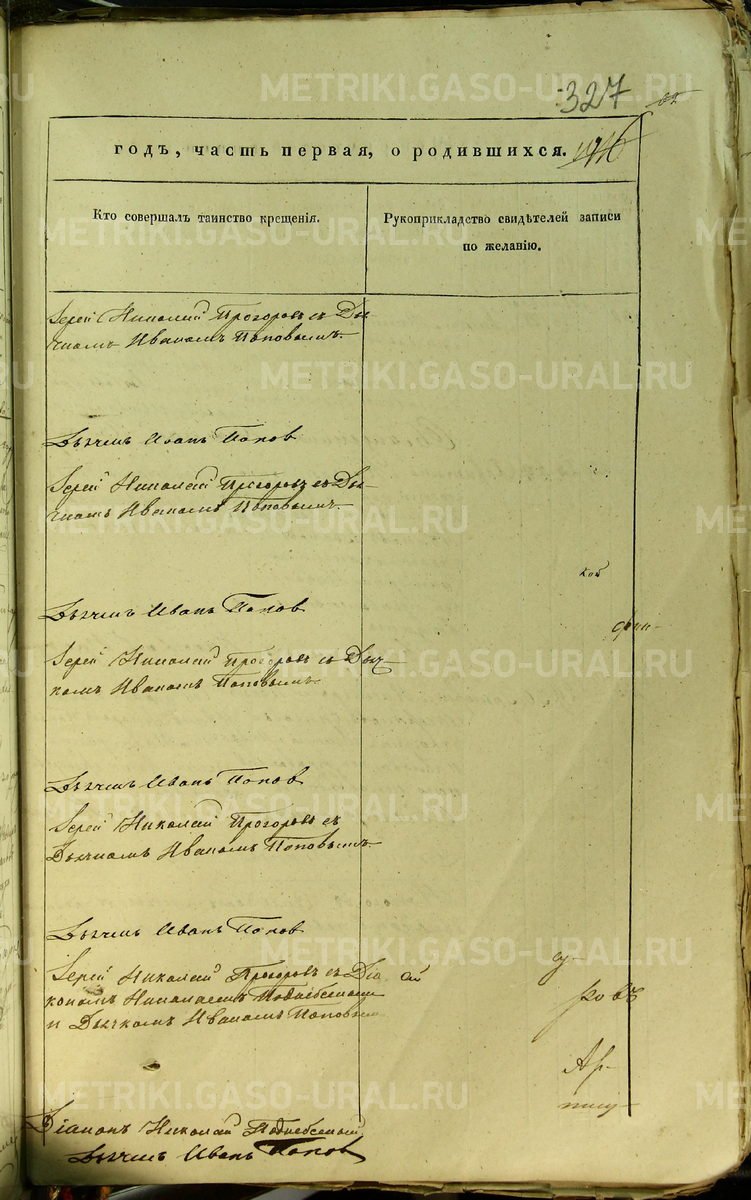 327
годъ, часть первая, о родившихся.
Кто совершалъ таинство крещенія.
Рукоприкладство свидѣтелей записи
по желанію.
Іерей Николай Прогоровъ съ Дья-
чкомъ Иваномъ Поповымъ.
Дьячекъ Иванъ Попов
Іерей Николай Прогоровъ съ Дья-
чкомъ Иваномъ Поповымъ.
кой
Дьячекъ Иванъ Попов
Іерей Николай Прогоровъ съ Дьяч-
комъ Иваномъ Поповымъ.
Дьячекъ Иванъ Попов
Іерей Николай Прогоровъ съ
Дьячкомъ Иваномъ Поповымъ.
Дьячекъ Иванъ Попов
Іерей Николай Прогоровъ съ Діа
кономъ Николаемъ Поднебеснымъ
и Дьячкомъ Иваномъ Поповым
ай
ровъ
Ар-
Діаконъ Николай Поднебесный
Дьячекъ Иванъ Попов
METRIKI.GASO-URAL.RU